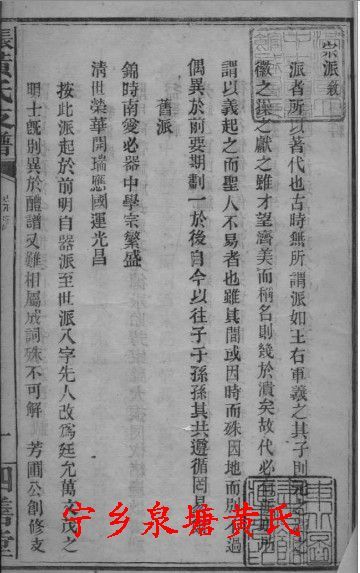 宗派敘
派者所以著代也古時無所謂派如王右軍羲之其子則
徽之渙之獻之雖才望濟美而稱名則幾於瀆矣故代必
謂以義起之而聖人不易者也雖其間或因時而殊因地而
偶異於前要期劃一於後自今以往子子孫孫其共遵循罔
舊派
錦時南愛必器中學宗繁盛
清世榮華開瑞應國運光昌
按此派起於前明自器派至世派八字先人改爲廷允萬
明士既別異於醴譜又雖相屬成詞殊不可解 芳圃公創修支
寧乡泉塘黄氏